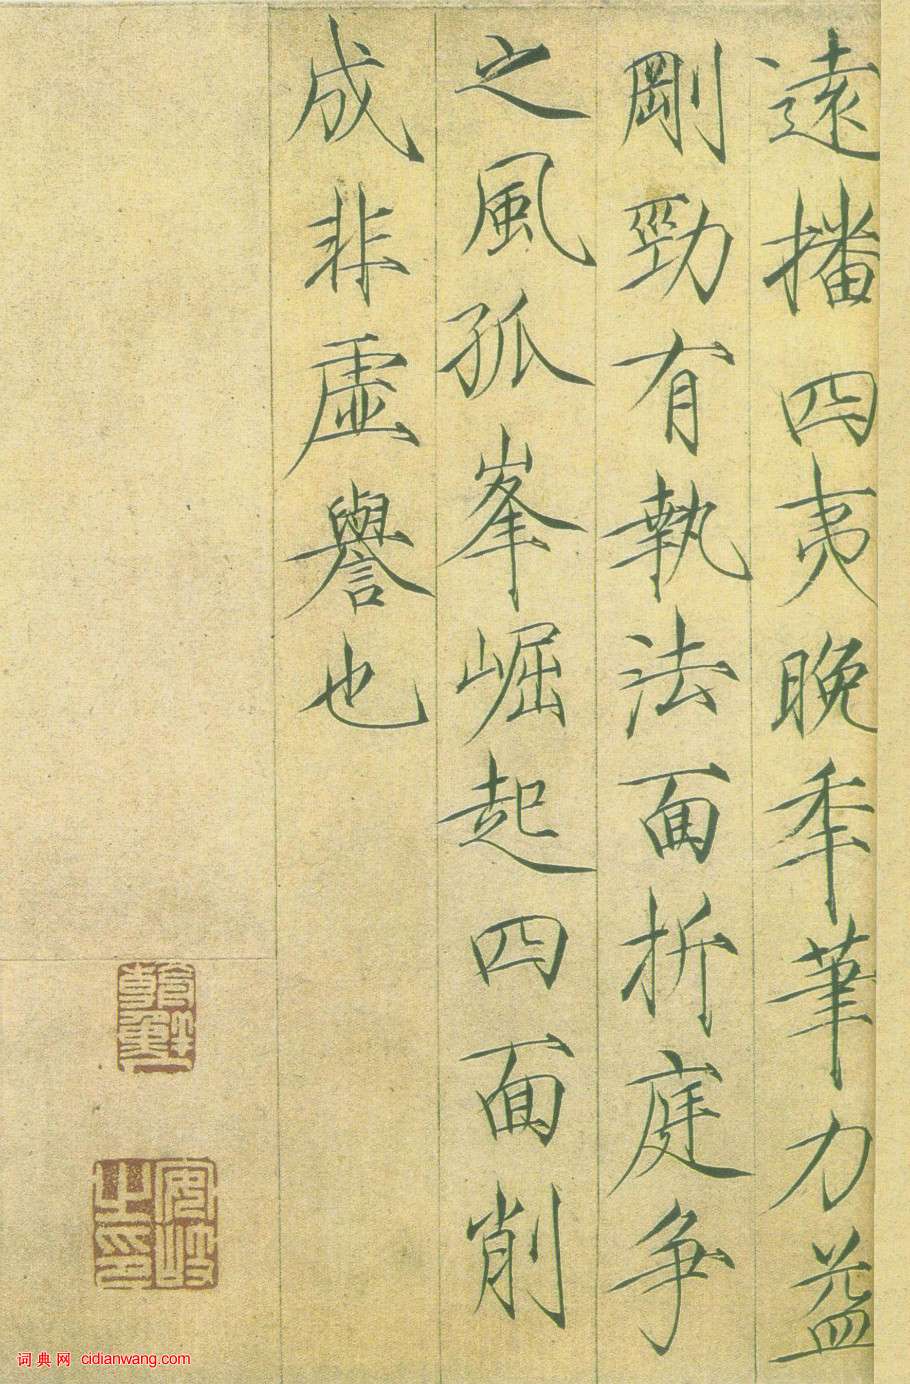 遠播四夷晚季筆力益
剛勁有執法面折庭爭
之風孤峯崛起四面削
成非虛譽也
安岐之印
词典网 cidianwang.com